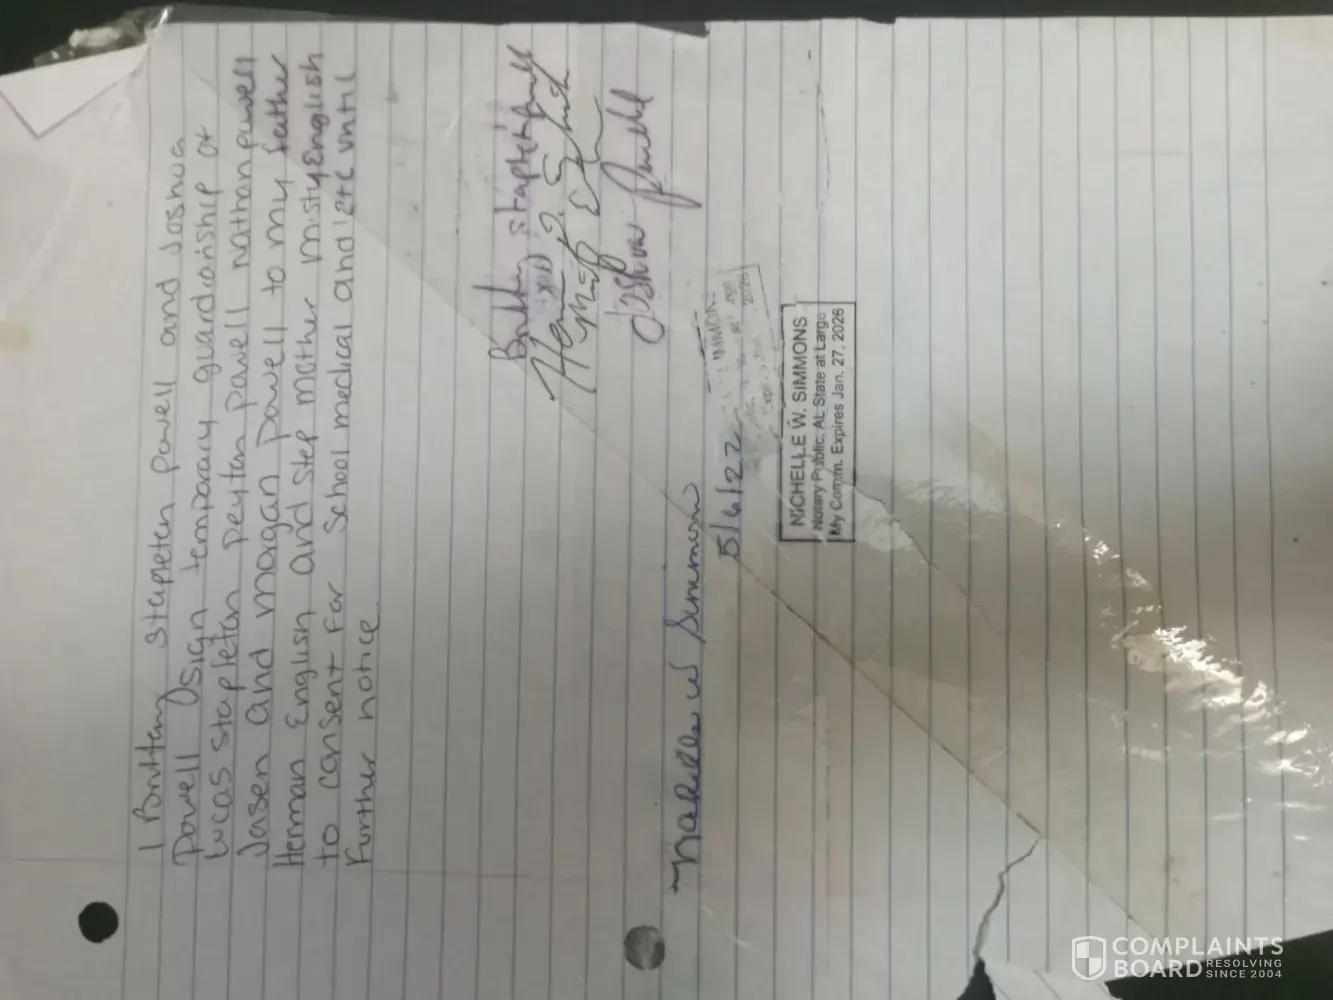 I Brittany stapleton powell and Joshua
Powell sign temporary guardianship of
Lucas stapleton peyton powell nathan powell
Jasen and morgan powell to my father
Herman English and step mother misty English
to consent for school medical and etc until
Further notice.
Brittany stapleton powell
Joshua Powell
Nichelle W Simmons
5/6/22
NICHELLE W. SIMMONS
Notary Public, AL State at Large
My Comm. Expires Jan. 27, 2026
COMPLAINTS
BOARD RESOLVING
SINCE 2004